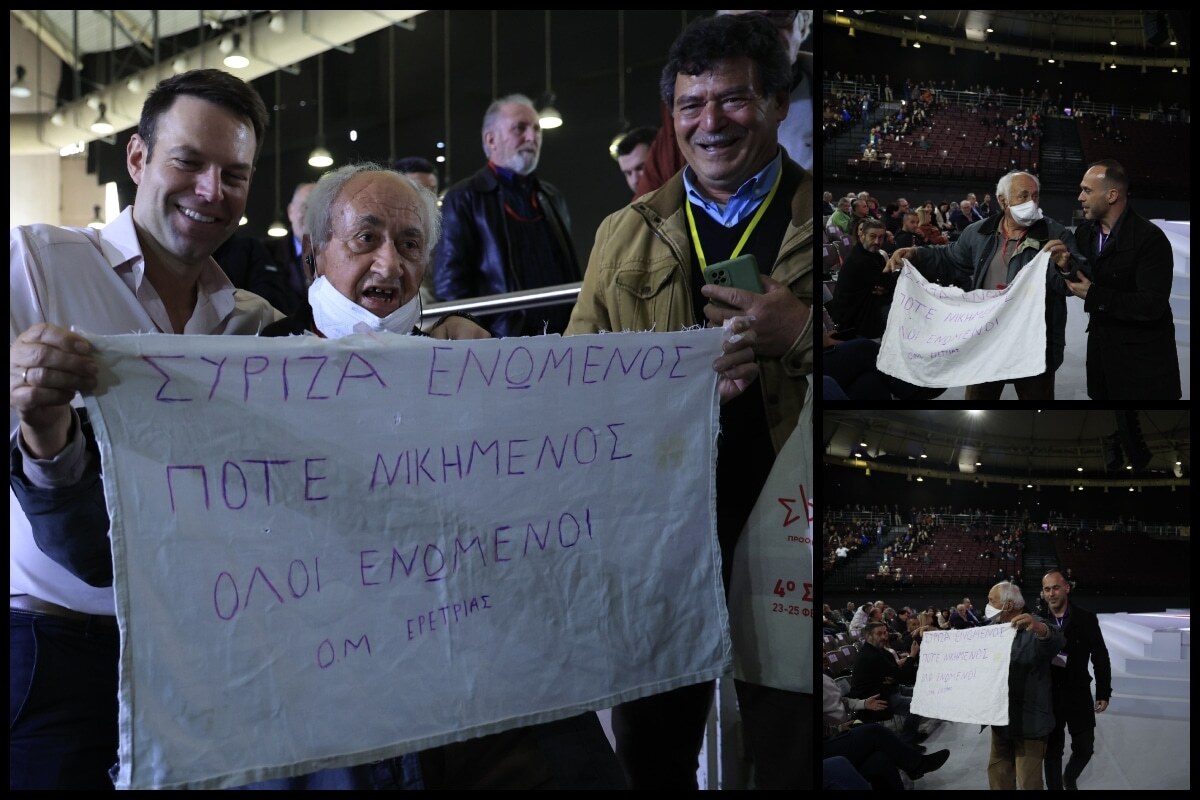 ΣΥΡΙΖΑ ΕΝΩΜΕΝΟΣ
ΠΟΤΕ ΝΙΚΗΜΕΝΟΣ
ΟΛΟΙ ΕΝΩΜΕΝΟΙ
Ο.Μ ΕΡΕΤΡΙΑΣ
4º Σ
23-25 ΦΕ
ΠΟΤΕ ΝΙΚΗΜΕΝΟ
ΟΛΟΙ ΕΝΩΜΕΝΟΙ
ΣΥΡΙΖΑ ΕΝΩΜΕΝΟΣ
ΠΟΤΕ ΝΙΚΗΜΕΝΟΣ
ΟΛΟΙ ΕΝΩΜΕΝΟΙ